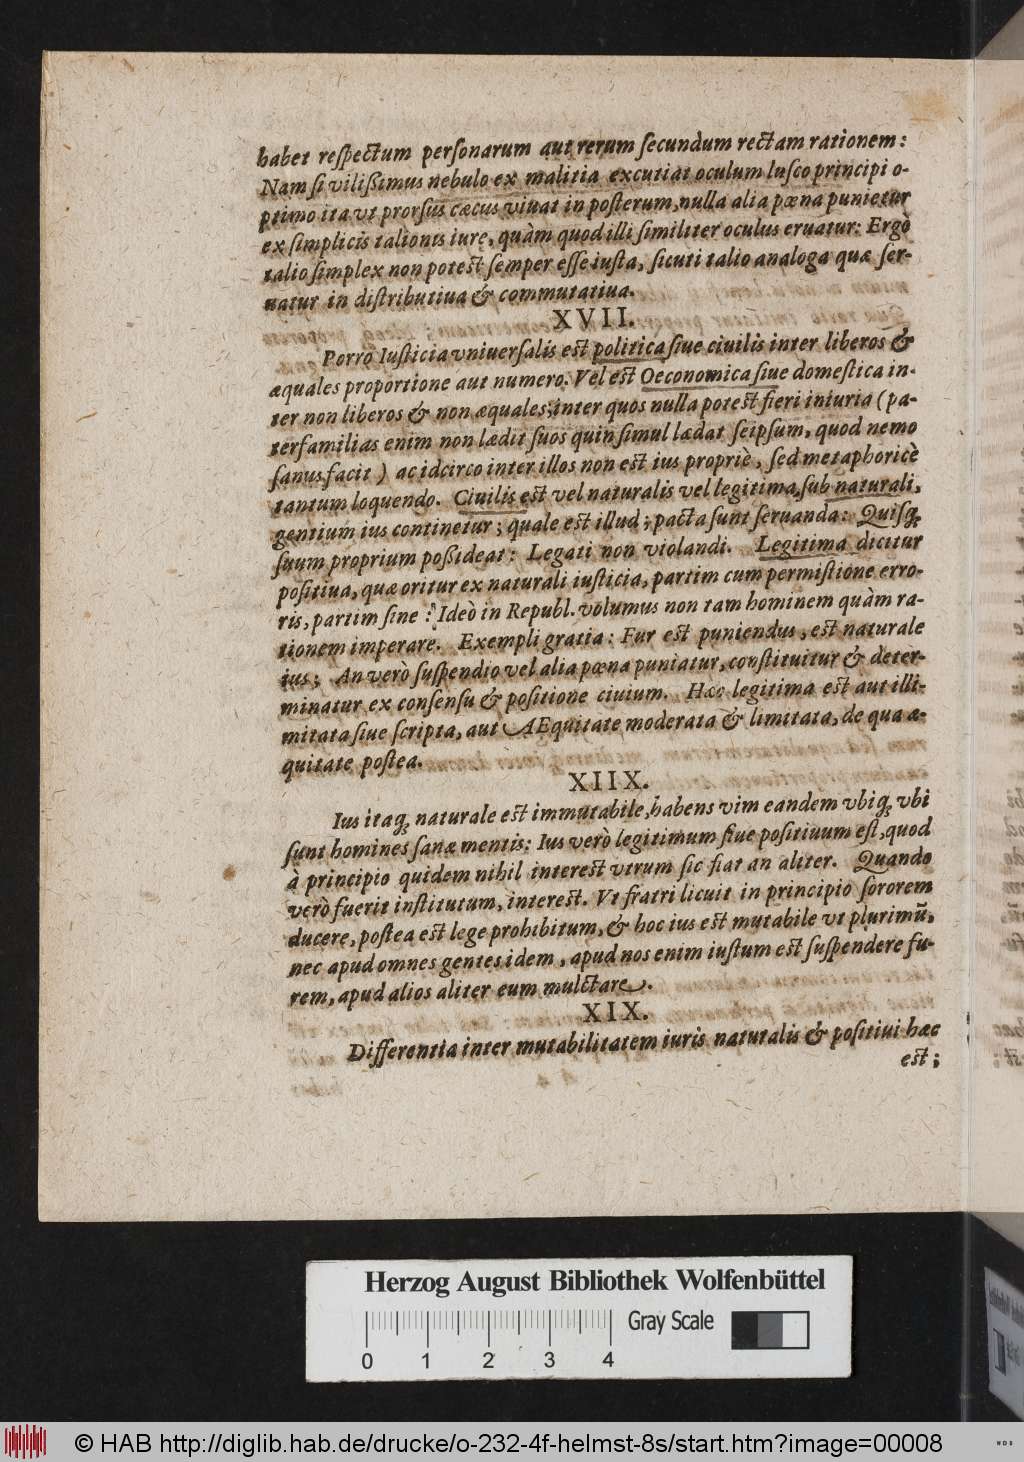 habet respectum personarum aut rerum secundum rectam rationem:
Nam si vilißimus nebulo ex malitia excutiat oculum lusco principi o-
ptimo ita vt prorsus cæcus viuat in posterum, nulla alia pœna punietur
ex simplicis talionis iure, quàm quod illi similiter oculus eruatur: Ergò
talio simplex non potest semper esse iusta, sicuti talio analoga quæ ser-
uatur in distributiua & commutatiua.
XVII.
Porrò Iusticia vniuersalis est politica siue ciuilis inter liberos &
æquales proportione aut numero. Vel est Oeconomica siue domestica in-
ter non liberos & non æquales; inter quos nulla potest fieri iniuria (pa-
terfamilias enim non lædit suos quin simul lædat seipsum, quod nemo
sanus facit) ac idcirco inter illos non est ius propriè, sed metaphoricè
tantum loquendo. Ciuilis est vel naturalis vel legitima, sub naturali,
gentium ius continetur; quale est illud; pacta sunt seruanda: Quisq;
suum proprium poßideat: Legati non violandi. Legitima dicitur
positiua, quæ oritur ex naturali iusticia, partim cum permistione erro-
ris, partim sine: Ideò in Republ. volumus non tam hominem quàm ra-
tionem imperare. Exempli gratia: Fur est puniendus, est naturale
ius; An verò suspendio vel alia pœna puniatur, constituitur & deter-
minatur ex consensu & positione ciuium. Hæc legitima est aut illi-
mitata siue scripta, aut AEquitate moderata & limitata, de qua æ-
quitate postea.
XIIX.
Ius itaq; naturale est immutabile, habens vim eandem vbiq; vbi
sunt homines sanæ mentis: Ius verò legitimum siue positiuum est, quod
à principio quidem nihil interest vtrum sic fiat an aliter. Quando
verò fuerit institutum, interest. Vt fratri licuit in principio sororem
ducere, postea est lege prohibitum, & hoc ius est mutabile vt plurimũ,
nec apud omnes gentes idem, apud nos enim iustum est suspendere fu-
rem, apud alios aliter eum mulctare.
XIX.
Differentia inter mutabilitatem iuris naturalis & positiui hæc
est;
Herzog August Bibliothek Wolfenbüttel
Gray Scale
0 1 2 3 4
© HAB http://diglib.hab.de/drucke/o-232-4f-helmst-8s/start.htm?image=00008